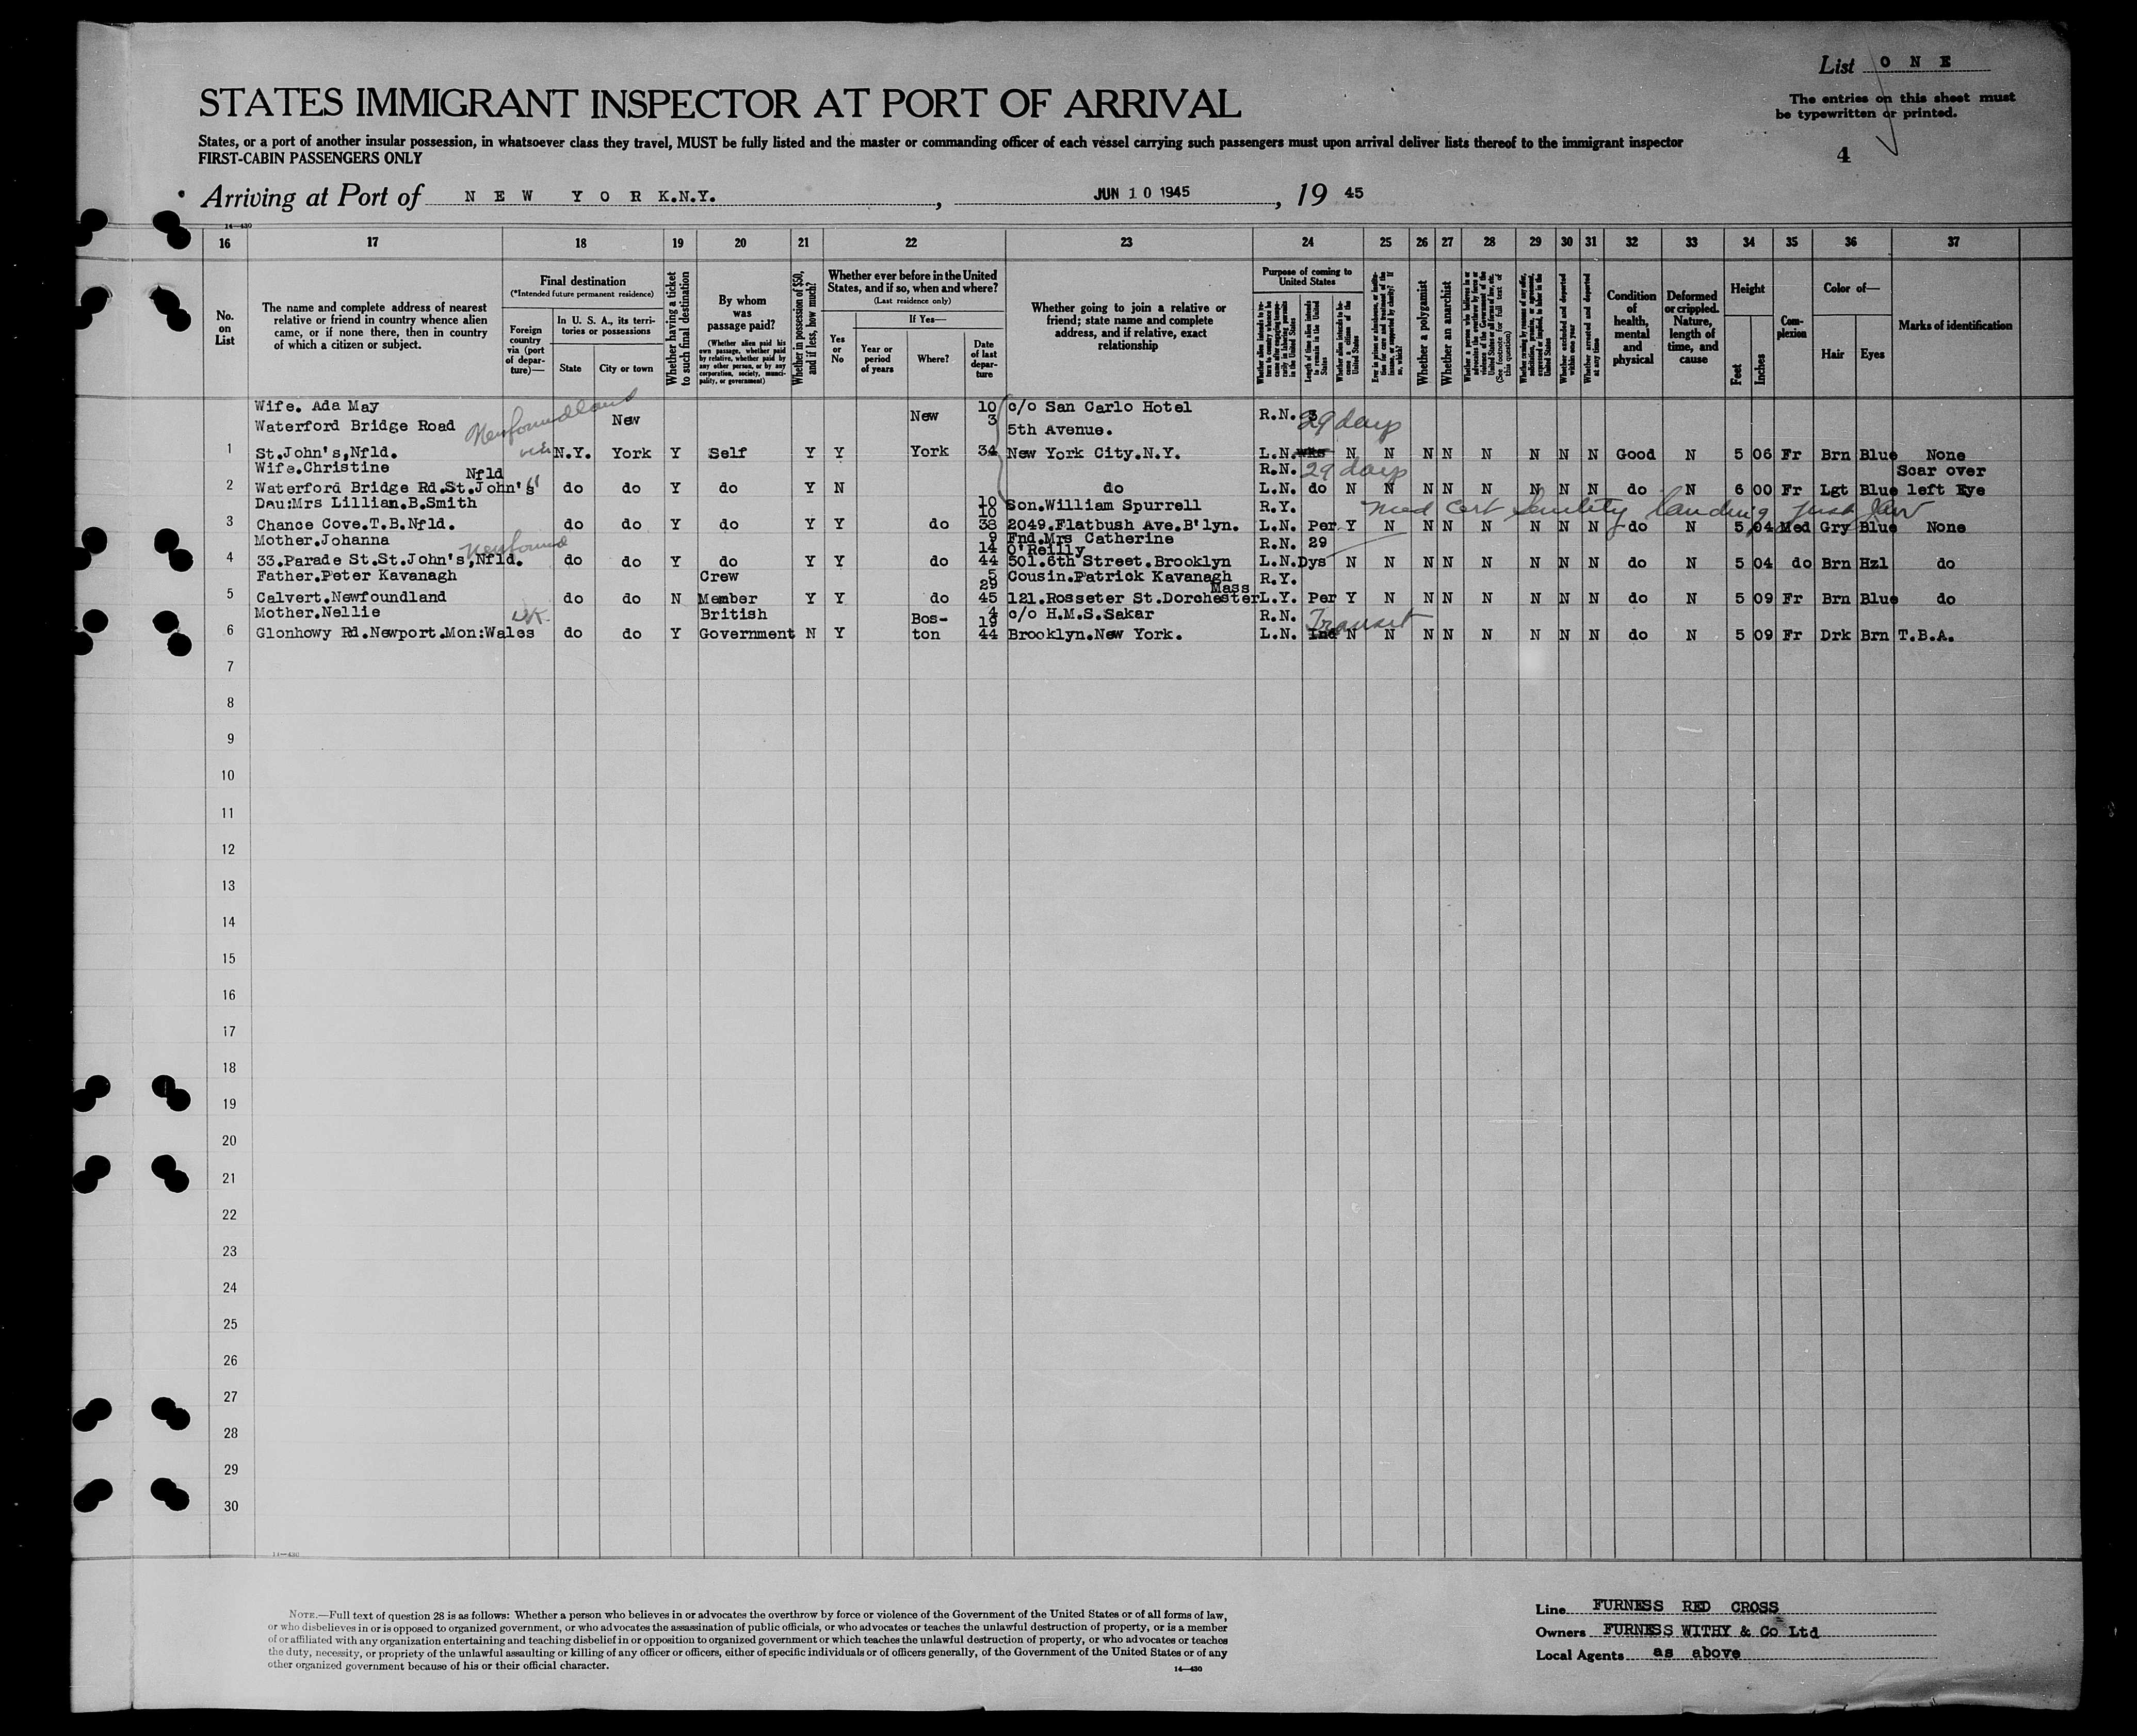 List O N E
STATES IMMIGRANT INSPECTOR AT PORT OF ARRIVAL
The entries on this sheet must
be typewritten or printed.
States, or a port of another insular possession, in whatsoever class they travel, MUST be fully listed and the master or commanding officer of each vessel carrying such passengers must upon arrival deliver lists thereof to the immigrant inspector
FIRST-CABIN PASSENGERS ONLY
4
Arriving at Port of N E W Y O R K.N.Y. , JUN 10 1945 , 19 45
14—430
16 17 18 19 20 21 22 23 24 25 26 27 28 29 30 31 32 33 34 35 36 37
No. on List
The name and complete address of nearest relative or friend in country whence alien came, or if none there, then in country of which a citizen or subject.
Final destination
(*Intended future permanent residence)
Foreign country via (port of departure)—
In U. S. A., its territories or possessions
State
City or town
Whether having a ticket to such final destination
By whom was passage paid?
(Whether alien paid his own passage, whether paid by relative, whether paid by any other person, or by any corporation, society, municipality, or government)
Whether in possession of $50, and if less, how much?
Whether ever before in the United States, and if so, when and where?
(Last residence only)
Yes or No
If Yes—
Year or period of years
Where?
Date of last departure
Whether going to join a relative or friend; state name and complete address, and if relative, exact relationship
Purpose of coming to United States
Length of time alien intends to remain in the United States
Whether a polygamist
Whether an anarchist
Whether excluded and deported within one year
Whether arrested and deported at any time
Condition of health, mental and physical
Deformed or crippled. Nature, length of time, and cause
Height
Feet
Inches
Complexion
Color of—
Hair
Eyes
Marks of identification
Wife. Ada May 10 c/o San Carlo Hotel
Waterford Bridge Road Newfoundland New New 3 5th Avenue. R.N. 3 29 days
1 St.John's,Nfld. N.Y. York Y Self Y Y York 34 New York City.N.Y. L.N. wks N N N N N N N N Good N 5 06 Fr Brn Blue None
Wife.Christine Nfld R.N. 29 days Scar over
2 Waterford Bridge Rd.St.John's do do Y do Y N do L.N. do N N N N N N N N do N 6 00 Fr Lgt Blue left Eye
Dau:Mrs Lillian.B.Smith 10 10 Son.William Spurrell R.Y. med cert Senility landing
3 Chance Cove.T.B.Nfld. do do Y do Y Y do 38 2049.Flatbush Ave.B'lyn. L.N. Per Y N N N N N N N do N 5 04 Med Gry Blue None
Mother.Johanna 9 14 Fnd.Mrs Catherine O'Reilly R.N. 29
4 33.Parade St.St.John's,Nfld. do do Y do Y Y do 44 501.6th Street.Brooklyn L.N. Dys N N N N N N N N do N 5 04 do Brn Hzl do
Father.Peter Kavanagh Crew 5 29 Cousin.Patrick Kavanagh Mass R.Y.
5 Calvert.Newfoundland do do N Member Y Y do 45 121.Rosseter St.Dorchester L.Y. Per Y N N N N N N N do N 5 09 Fr Brn Blue do
Mother.Nellie UK British Bos- 4 19 c/o H.M.S.Sakar R.N. Transit
6 Glonhowy Rd.Newport.Mon:Wales do do Y Government N Y ton 44 Brooklyn.New York. L.N. Ind N N N N N N N N do N 5 09 Fr Drk Brn T.B.A.
7
8
9
10
11
12
13
14
15
16
17
18
19
20
21
22
23
24
25
26
27
28
29
30
14—430
NOTE.—Full text of question 28 is as follows: Whether a person who believes in or advocates the overthrow by force or violence of the Government of the United States or of all forms of law,
or who disbelieves in or is opposed to organized government, or who advocates the assassination of public officials, or who advocates or teaches the unlawful destruction of property, or is a member
of or affiliated with any organization entertaining and teaching disbelief in or opposition to organized government or which teaches the unlawful destruction of property, or who advocates or teaches
the duty, necessity, or propriety of the unlawful assaulting or killing of any officer or officers, either of specific individuals or of officers generally, of the Government of the United States or of any
other organized government because of his or their official character.
14—430
Line FURNESS RED CROSS
Owners FURNESS WITHY & Co Ltd
Local Agents as above